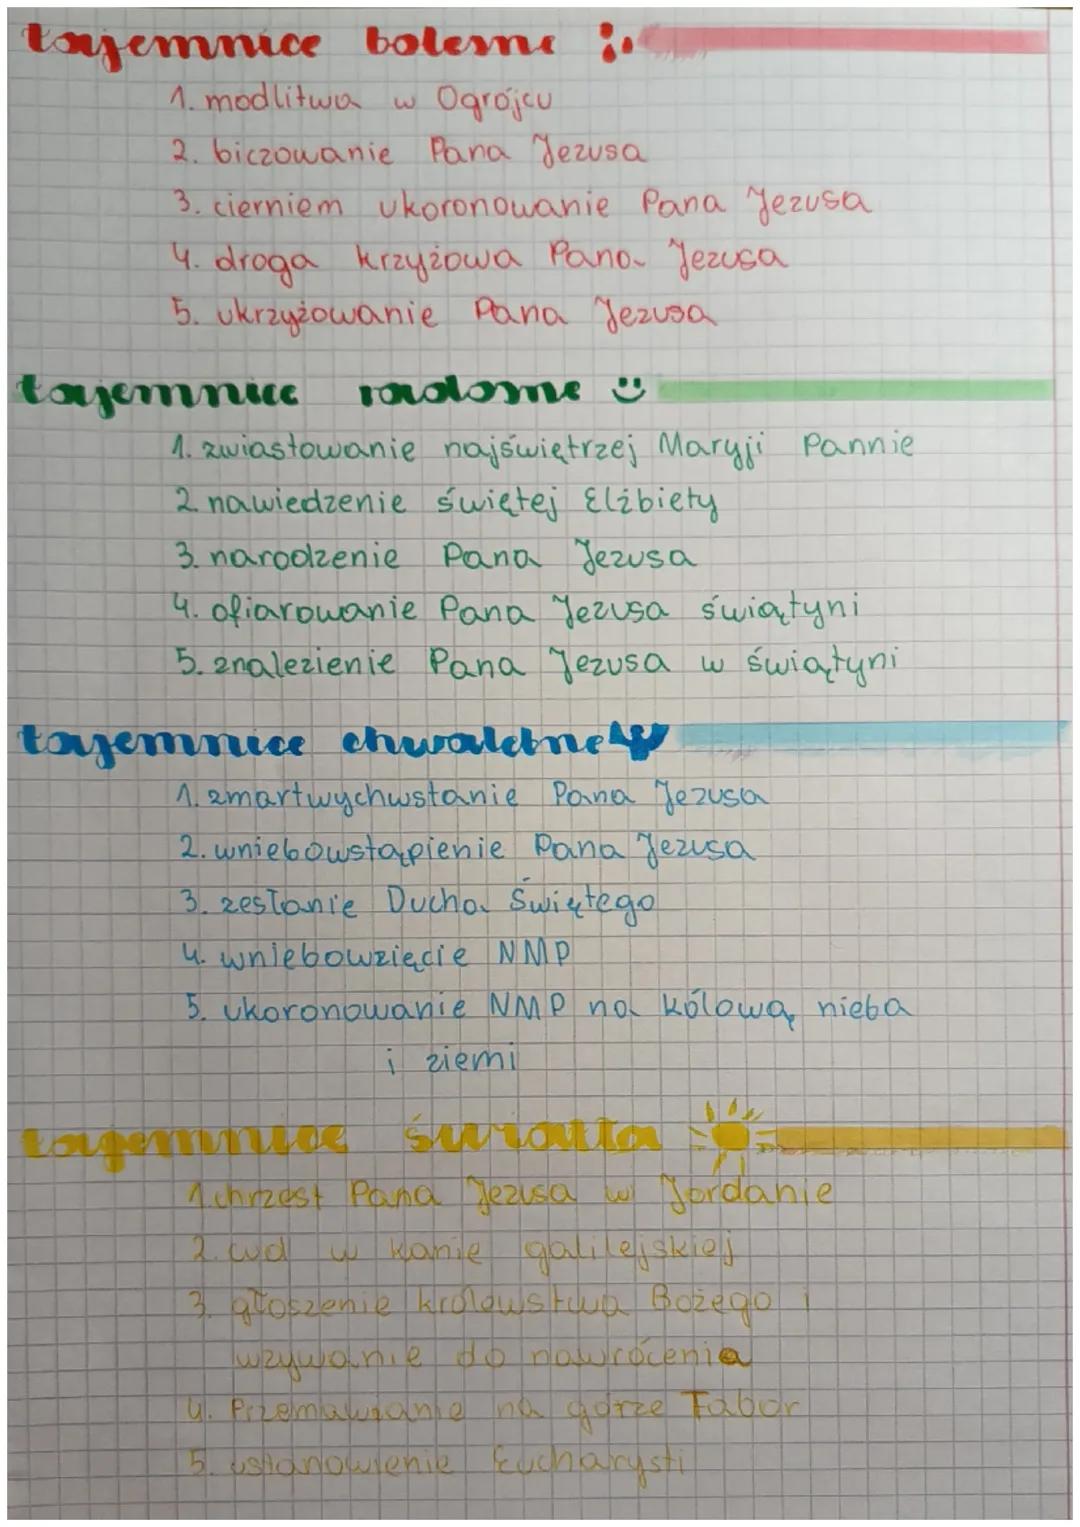 tajemnice bolesne
1. modlitwa w Ogrójcu
2. biczowanie Pana Jezusa
3. cierniem ukoronowanie Pana Jezusa
4. droga krzyżowa Pana Jezusa
5. ukrzyżowanie Pana Jezusa
tajemnice radosne
1. zwiastowanie najświętrzej Maryji Pannie
2. nawiedzenie świętej Elżbiety
3. narodzenie Pana Jezusa
4. ofiarowanie Pana Jezusa świątyni
5. znalezienie Pana Jezusa w świątyni
tajemnice chwalebne
1. zmartwychwstanie Pana Jezusa
2. wniebowstąpienie Pana Jezusa
3. zesłanie Ducha Świętego
4. wniebowzięcie NMP
5. ukoronowanie NMP na kólową nieba
i ziemi
tajemnice światła
1. chrzest Pana Jezusa w Jordanie
2. cud w kanie galilejskiej
3. głoszenie królowstwa Bożego i
wzywanie do nawrócenia
4. Przemawianie na górze Tabor
5. ustanowienie Eucharysti